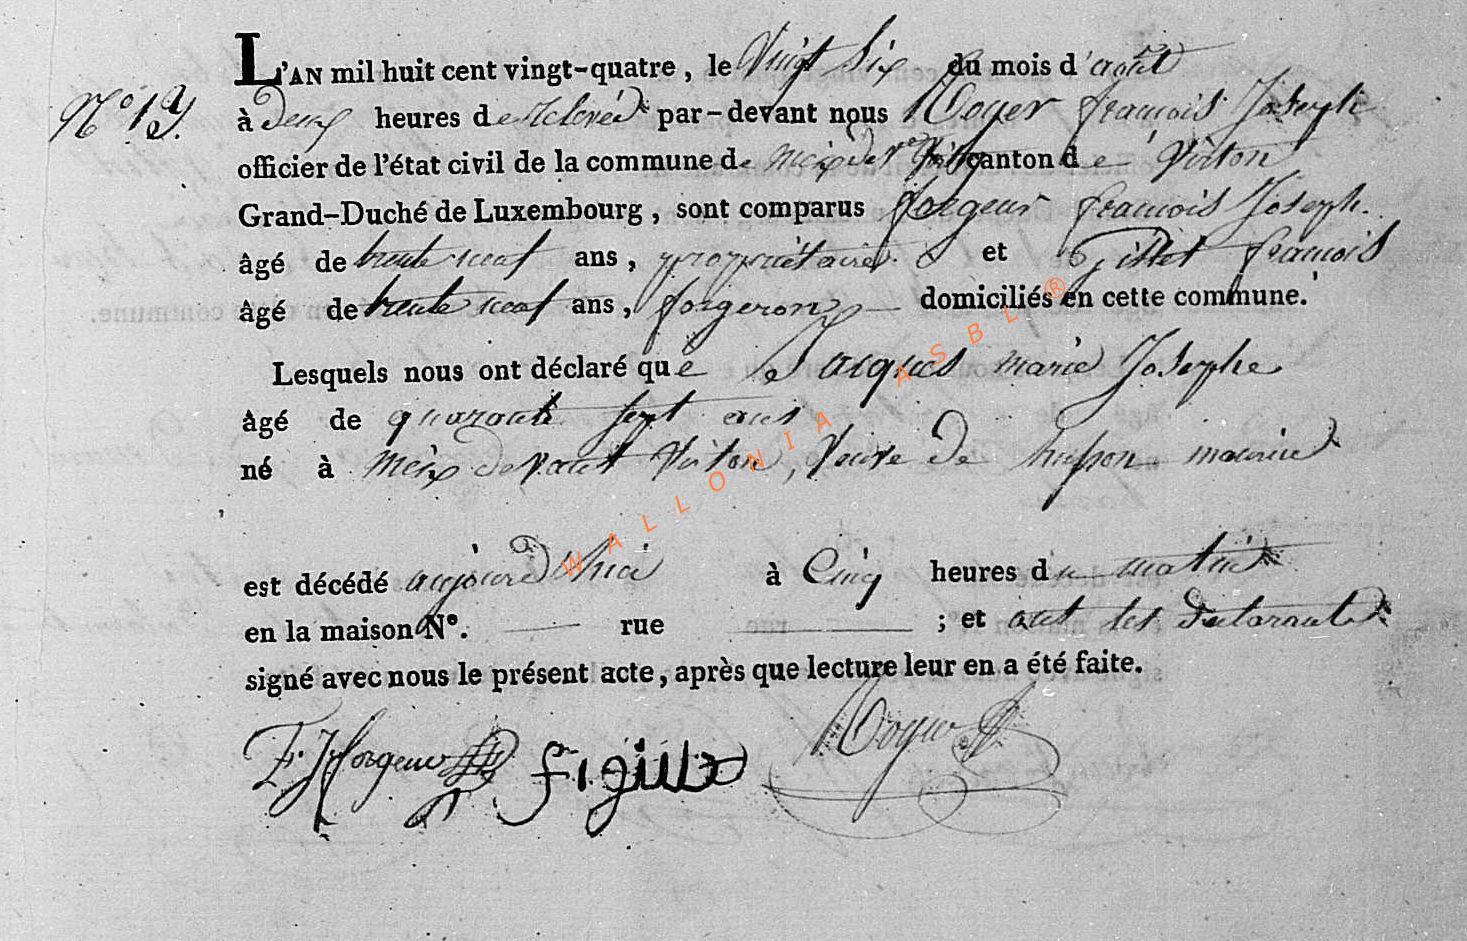 L'AN mil huit cent vingt-quatre, le Vingt Six du mois d'août
N° 19.
à Deux heures de Relevée par-devant nous Noyer françois Joseph
officier de l'état civil de la commune de meix devt Virton canton de Virton
Grand-Duché de Luxembourg, sont comparus forgeur françois Joseph
âgé de trente neuf ans, propriétaire et Gillet françois
âgé de trente neuf ans, forgeron domiciliés en cette commune.
Lesquels nous ont déclaré que Jacques marie Josephe
âgé de quarante sept ans
né à meix devant Virton, Veuve de husson maurice
est décédé aujourd'hui à Cinq heures du matin
en la maison N°. rue ; et ont les déclarants
signé avec nous le présent acte, après que lecture leur en a été faite.
F. J. forgeur fr gillet Noyer
WALLONIA ASBL ®